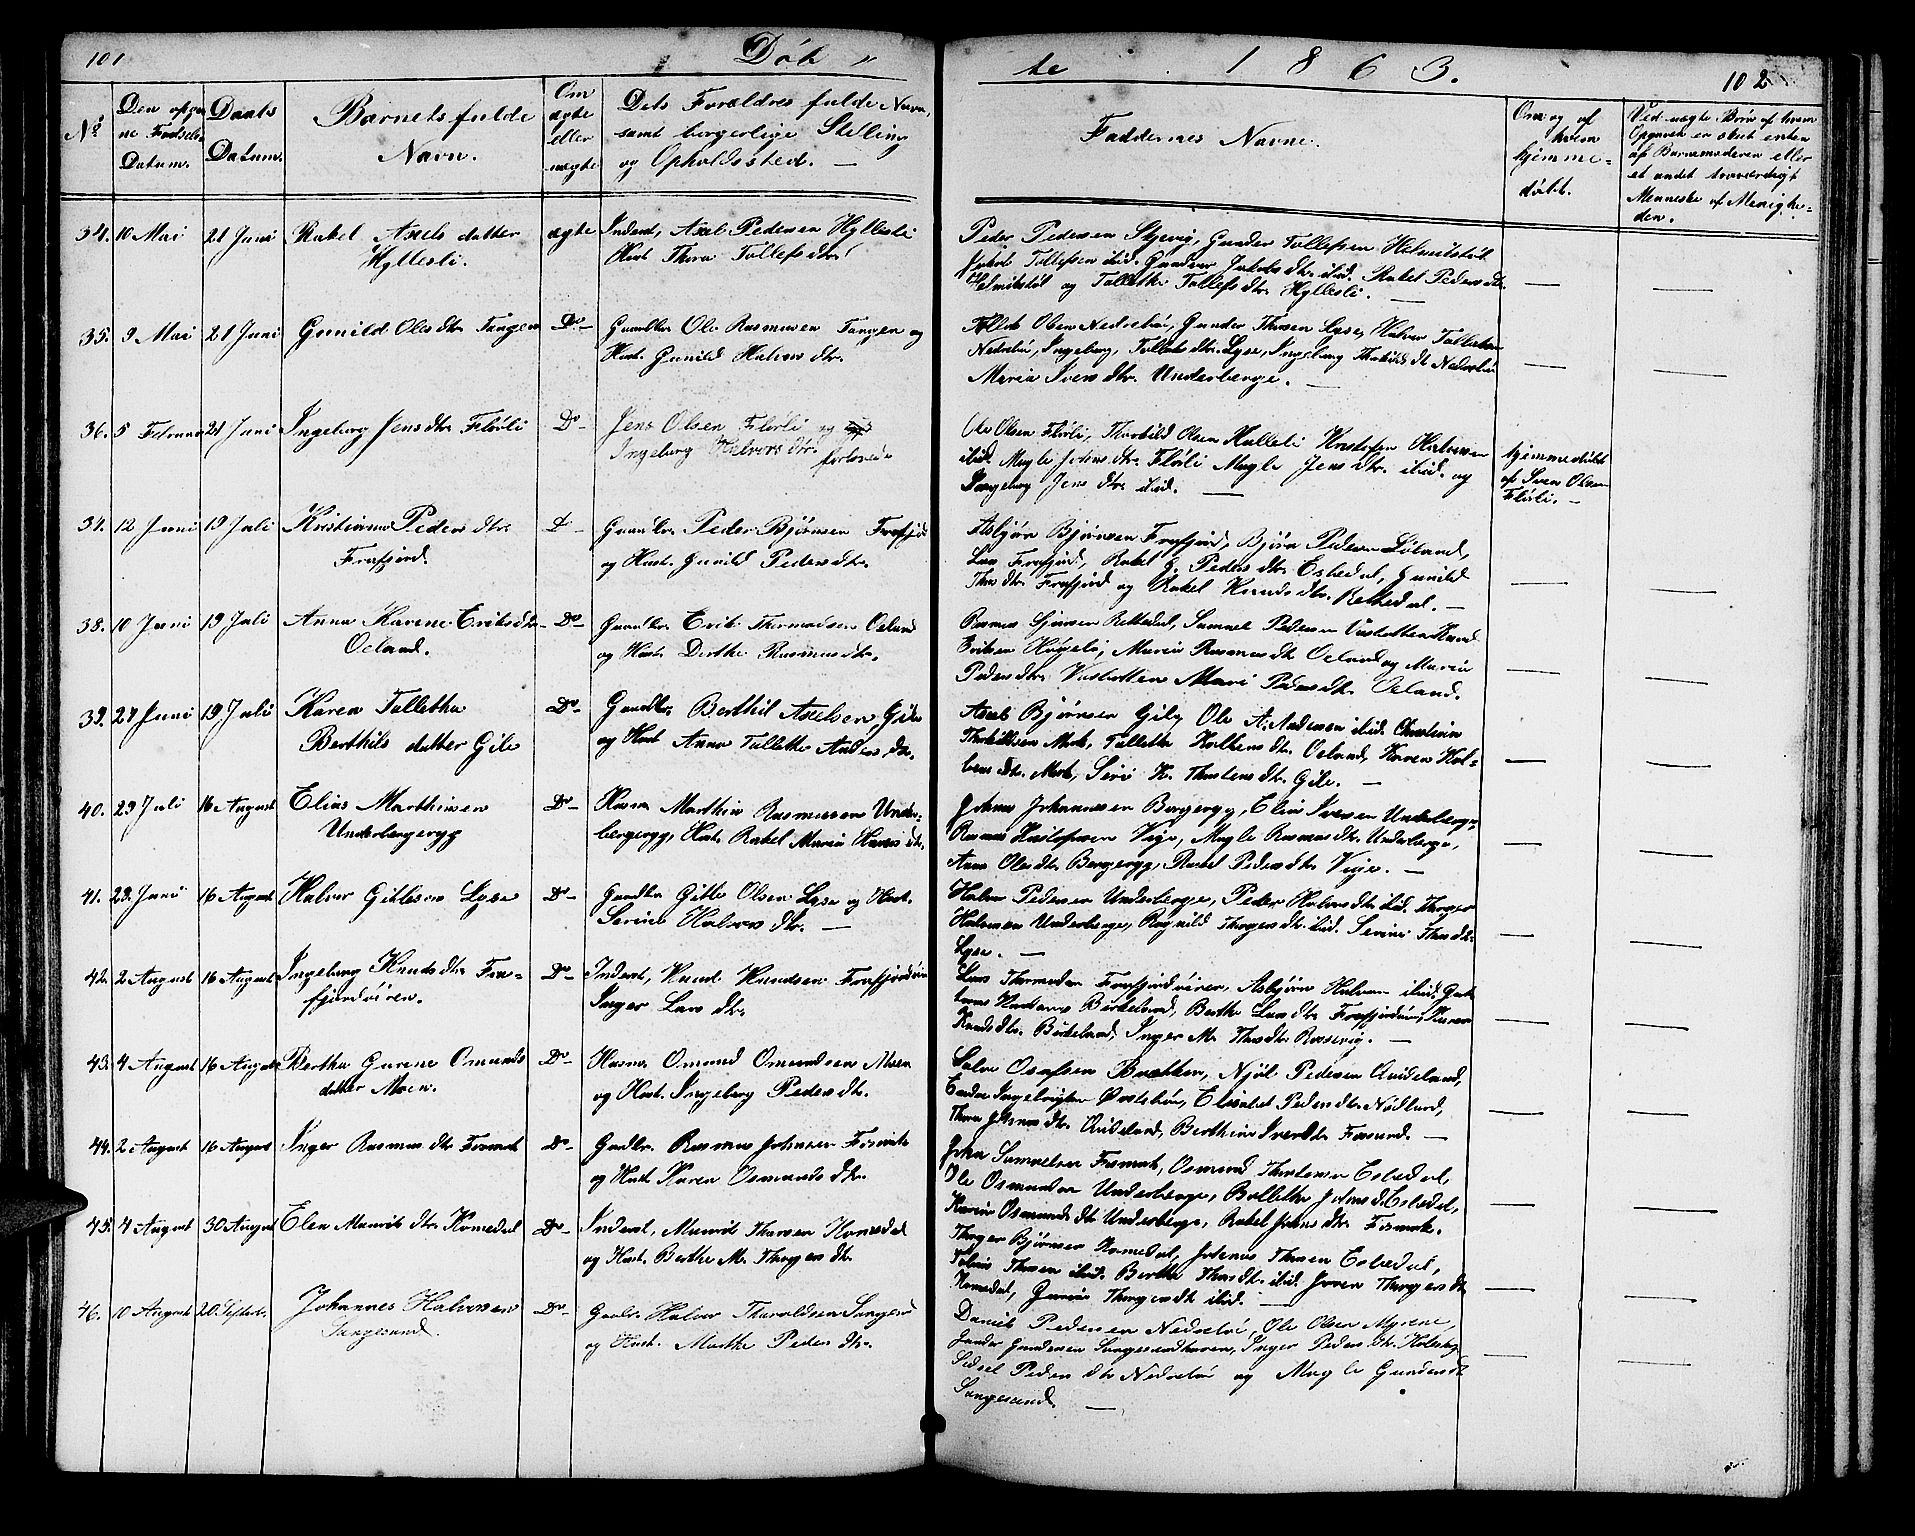 101
Døb „
te 1863.
102
No
Den opgiv
ne Fødsels
Datum.
Daabs
Datum.
Barnets fulde
Navn.
Om
ægte
eller
uægte
Dets Forældres fulde Navn,
samt borgerlige Stilling
og Opholdssted. —
Faddernes Navne.
Om og af
hvem
hjemme-
døbt.
Ved uægte Børn af hvem
Opgaven er skeet enten
af Barnemoderen eller
et andet troværdigt
Menneske af Menighe-
den.
34. 10 Mai 21 Juni Rakel Axels datter
Hyllesli.
ægte
Inderst, Axel Pedersen Hyllesli
Hust. Thora Tollefsdtr.
Peder Pedersen Skjevig, Gunder Tollefsen Helmikstøl
Jakob Tollefsen ibid. Gunder Jakobsdtr. ibid. Rakel Pedersdtr.
Helmikstøl og Tollethe Tollefsdtr. Hyllesli. —
35. 9 Mai 21 Juni Gunild Olesdtr. Tangen
Do—
Gaardbr. Ole Rasmusen Tangen og
Hust. Gunild Halvorsdtr.
Tollak Olsen Nedrebø, Gunder Thorsen Lyse, Halvor Tollaksen
Nedrebø, Ingeborg Tollaksdtr. Lyse, Ingeborg Thorkildsdtr. Nedrebø
Maria Svensdtr. Underberge. —
36. 5 Februar 21 Juni Ingeborg Jensdtr. Flørli
Do—
Jens Olsen Flørli og
Ingeborg Halvorsdtr.
Ole Olsen Flørli, Thorkild Olsen Kalleli Kristofer Halvorsen
ibid. Magle Johnsdtr. Flørli Magle Jensdtr. ibid. og
Ingeborg Jensdtr. ibid. —
hjemmedøbt
af Sven Olsen
Flørli. —
37. 12 Juni 19 Juli Kristianna Pedersdtr.
Frafjord.
D—
Gaardbr. Peder Bjørnsen Frafjord
og Hust. Gunild Pedersdtr.
Asbjørn Bjørnsen Frafjord, Bjørn Pedersen Løland,
Lars Frafjord, Rakel G. Pedersdtr. Eskedal, Gunild
Thorsdtr. Frafjord og Rakel Knudsdtr. Rettedal. —
38. 10 Juni 19 Juli Anna Karene Eriksdtr.
Oeland.
Do—
Gaardbr. Erik Thormodsen Oeland
og Hust. Derthe Rasmusdtr.
Rasmus Sjursen Rettedal, Samuel Pedersen Vasbotten Knud
Eriksen Høgeli, Maria Rasmusdtr. Oeland og Maria
Pedersdtr. Vasbotten Mari Pedersdtr. Oeland.
39. 27 Juni 19 Juli Karen Tallettha
Berthils datter Gile
Do—
Gaardbr. Berthil Axelsen Gile
og Hust. Anna Tallette Andersdtr.
Axel Bjørnsen Gile, Ole A. Andersen ibid. Christian
Thorkildsen Mork, Talletta Kolbensdtr. Oeland, Karen Kol-
bensdtr. Mork, Seri K. Thorstensdtr. Gile. —
40. 29 Juli 16 August Elias Marthinsen
Underbergeryg
Do—
Husm. Marthin Rasmussen Under-
bergeryg, Hust. Rakel Maria Hansdtr.
Johns Johannessen Bergeryg, Elias Svensen Underberge,
Rasmus Kristofersen Vige, Magle Rasmusdtr. Underberge,
Anna Olesdtr. Bergeryg, Rakel Pedersdtr. Vige. —
41. 23. Juni 16 August Halvor Gitlesen Lyse
Do—
Gaardbr. Gitle Olsen Lyse og Hust.
Serine Halvorsdtr. —
Halvor Pedersen Underberge, Peder Halvorsdtr. ibid. Thorger
Halvorsen Underberge, Ragnild Thorgersdtr. ibid. Serine Thorsdtr.
Lyse. —
42. 2 August 16 August Ingeborg Knudsdtr. Fra-
fjordøiren.
Do—
Inderst, Knud Knudsen Frafjordøiren
Inger Larsdtr.
Lars Thormodsen Frafjordøiren, Asbjørn Halvorsen ibid. Gut-
torm Knudsen Birkeland, Berthe Larsdtr. Frafjordøiren, Karen
Knudsdtr. Birkeland, Inger M. Thorsdtr. Rossevig. —
43. 4 August 16 August Bertha Gurene Omunds
datter Moen.
Do—
Husm. Omund Omundsen Moen
og Hust. Ingeborg Pedersdtr.
Salve Osufsen Brekken, Njøl Pedersen Avideland,
Endre Ingebrigtsen Øvstebø, Elisabet Pedersdtr. Nødland,
Thora Johnsdtr. Avideland, Berthine Svensdtr. Fossand. —
44. 2 August 16 August Inger Rasmusdtr. Fosmark
Do—
Gaardbr. Rasmus Johnsen Fosmark
og Hust. Karen Osmundsdtr.
John Samuelsen Fosmark, Osmund Thorstensen Eskedal,
Ole Osmundsen Underberge, Ballette Johnsdtr. Eskedal,
Karen Osmundsdtr. Underberge, Rakel Johnsdtr. Fosmark.
45. 4 August 30 August Elen Mauritsdtr. Komedal
Do—
Inderst, Maurits Thorsen Komedal
og Hust. Berthe M. Thorgersdtr.
Thorger Bjørnsen Komedal, Johannes Thorsen Eskedal,
Tobias Thorsen ibid. Bertha Thorsdtr. ibid. Joren Thorgersdtr.
Komedal, Gurine Thorgersdtr. ibid. —
46. 10 August 20. Septbr. Johannes Halvorsen
Songesand.
Do—
Gaardbr. Halvor Tharaldsen Songesand
og Hust. Marthe Pedersdtr.
Daniel Pedersen Nedrebø, Ole Olsen Myrene,
Gunder Gundersen Songesandhaven, Inger Pedersdtr.
Sidsel Pedersdtr. Nedrebø og Magle Gundersdtr.
Songesand. —